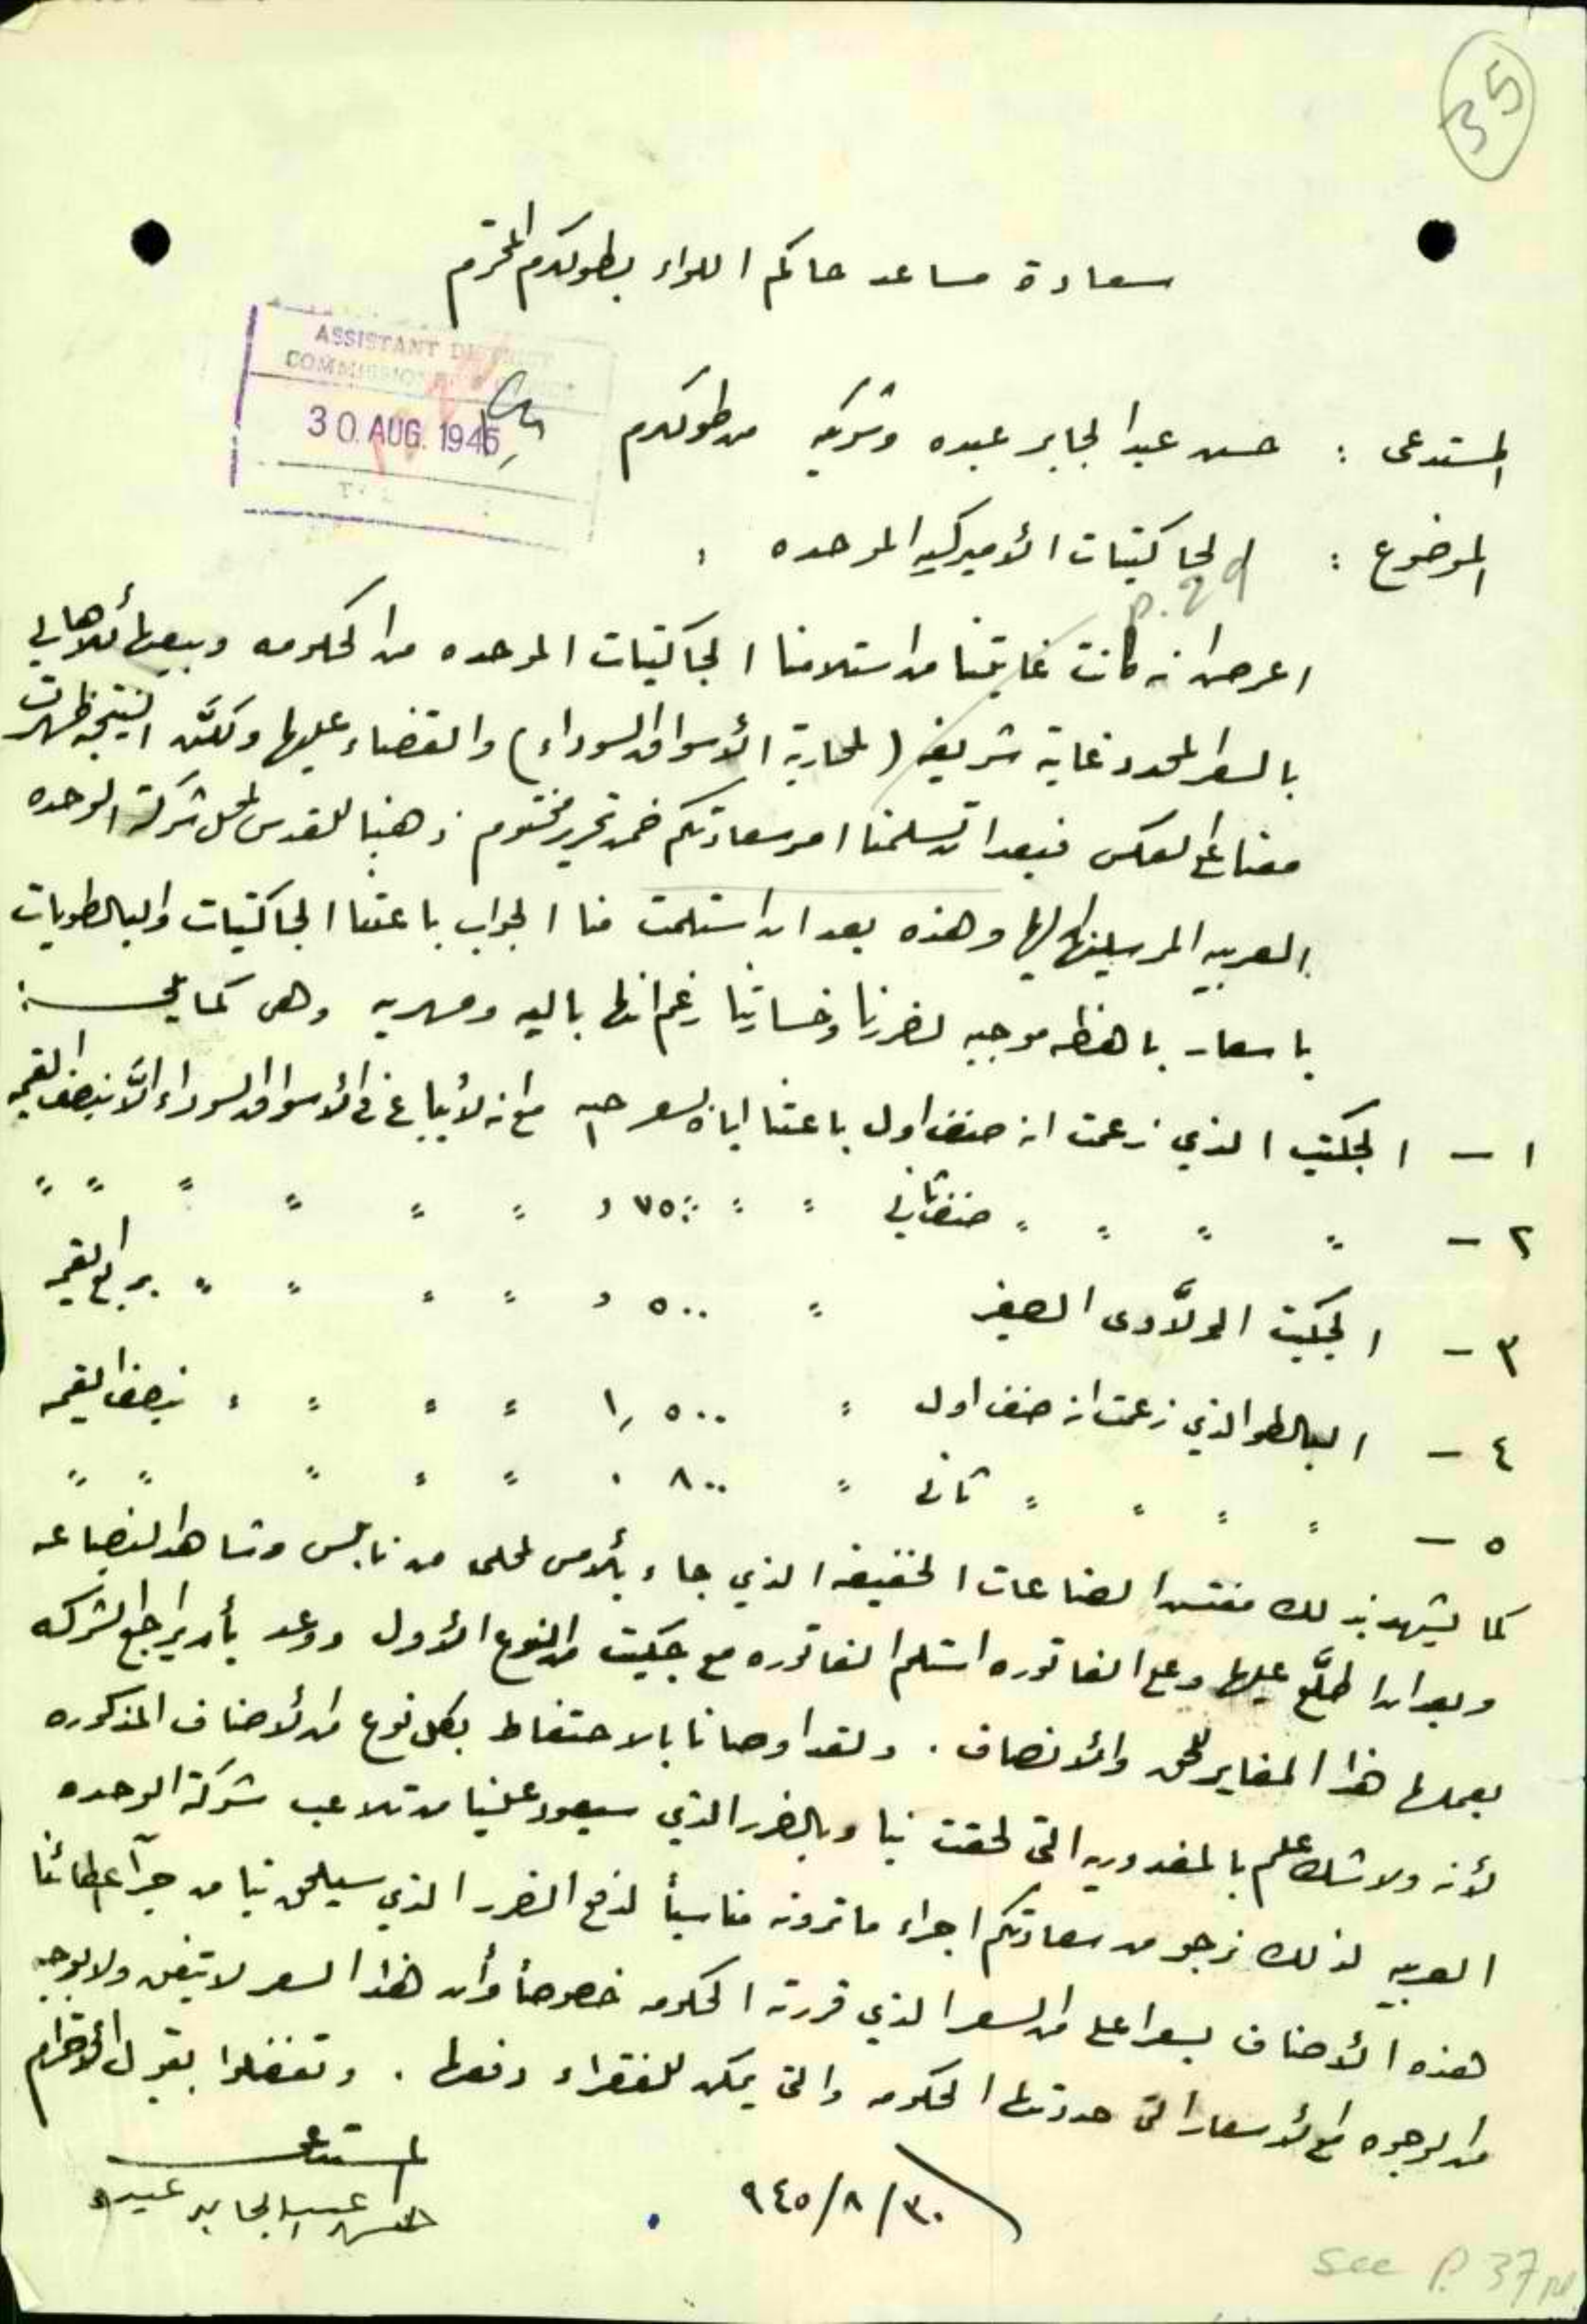 35
سعادة مساعد حاكم اللواء بطولكرم المحترم
ASSISTANT DISTRICT
COMMISSIONER'S
30 AUG. 1945
المستدعى : حسن عبد الجابر عبده وشركيه من طولكرم
الموضوع : الجاكتيات الأميركيه الموحده :
p. 29
اعرض انه كانت غايتنا من استلامنا الجاكتيات الموحده من الحكومه وبيعها للأهالي
بالسعر المحدد غاية شريفه (لمحاربة الأسواق السوداء) والقضاء عليها ولكنَّ النتيجه ظهرت
معنا على العكس فبعد ان تسلمنا امر سعادتكم ضمن تحرير مختوم ذهبنا للقدس لمحل شركة الوحده
العربيه المرسلينا اليها وهذه بعد ان استلمت منا الجواب باعتنا الجاكتيات والبالطويات
باسعار باهظه موجبه لضررنا وخسارتنا رغم انها باليه ومهريه وهى كما يلى :
١ - الجكتيت الذي زعمت انه صنف اول باعتنا اياه بسعر جنيه ١ مع انه لأيباع فى الأسواق السوداء الاَّ بنصف القيمه
٢ - " " " " صنف ثاني " " ٧٥٠ , " " " " " "
٣ - الجكيت الولاَّدى الصغير " ٥٠٠ , " " " " بربع القيمه
٤ - البالطو الذي زعمت انه صنف اول " ١,٥٠٠ " " " " بنصف القيمه
٥ - " " " " ثانى " ٨٠٠ . " " " " "
كما يشهد بذلك مفتش الصناعات الخفيفه الذي جاء بألامس لمحلى من نابلس وشاهد البضاعه
وبعد ان اطلَّع عليها وعلى الفاتوره استلم الفاتوره مع جكيت من النوع الأول ووعد بأن يراجع الشركه
بعملها هذا المغاير للحق والأنصاف . ولقد اوصانا بالاحتفاظ بكل نوع من الأصناف المذكوره
لأنه ولا شك علم بالمغدوريه التى لحقت بنا وبالضرر الذي سيعود علينا من تلاعب شركة الوحده
العربيه لذلك نرجو من سعادتكم اجراء ما ترونه مناسباً لدفع الضرر الذي سيلحق بنا من جرآء اعطائنا
هذه الأصناف بسعر اعلى من السعر الذي قررته الحكومه خصوصاً وأن هذا السعر لا يتفق ولا بوجه
من الوجوه مع الأسعار التى حددتها الحكومه والتى يمكن للفقراء دفعها . وتفضلوا بقبول الأحترام
٣٠/٨/٩٤٥
المستدعى
حسن عبد الجابر عبده
see P. 37